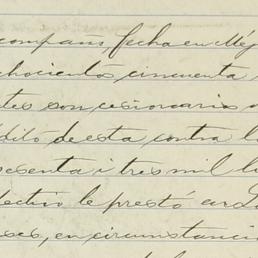 compañs, fecha en Méj
chocientos cincuenta
tes son cesionarios
dito de esta contra l
sesenta i tres mil l
lectivo le prestó en L
ses, en circunstanci